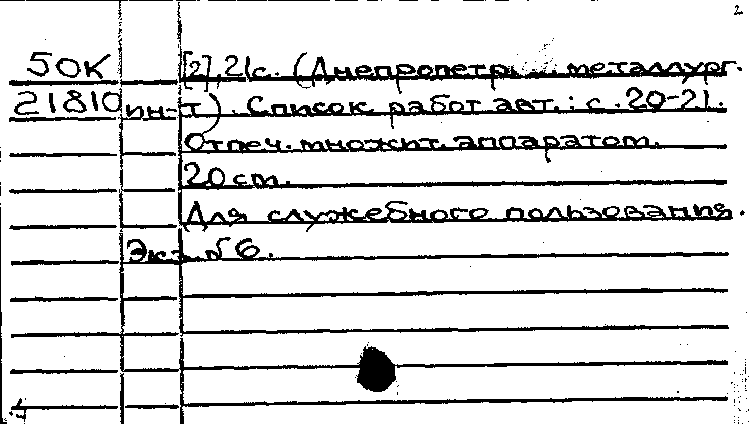 2
50К [2], 21с. (Днепропетр. металлург.
21810 ин-т). Список работ авт.: с. 20-21.
Отпеч. множит. аппаратом.
20 см.
Для служебного пользования.
Экз. №6.